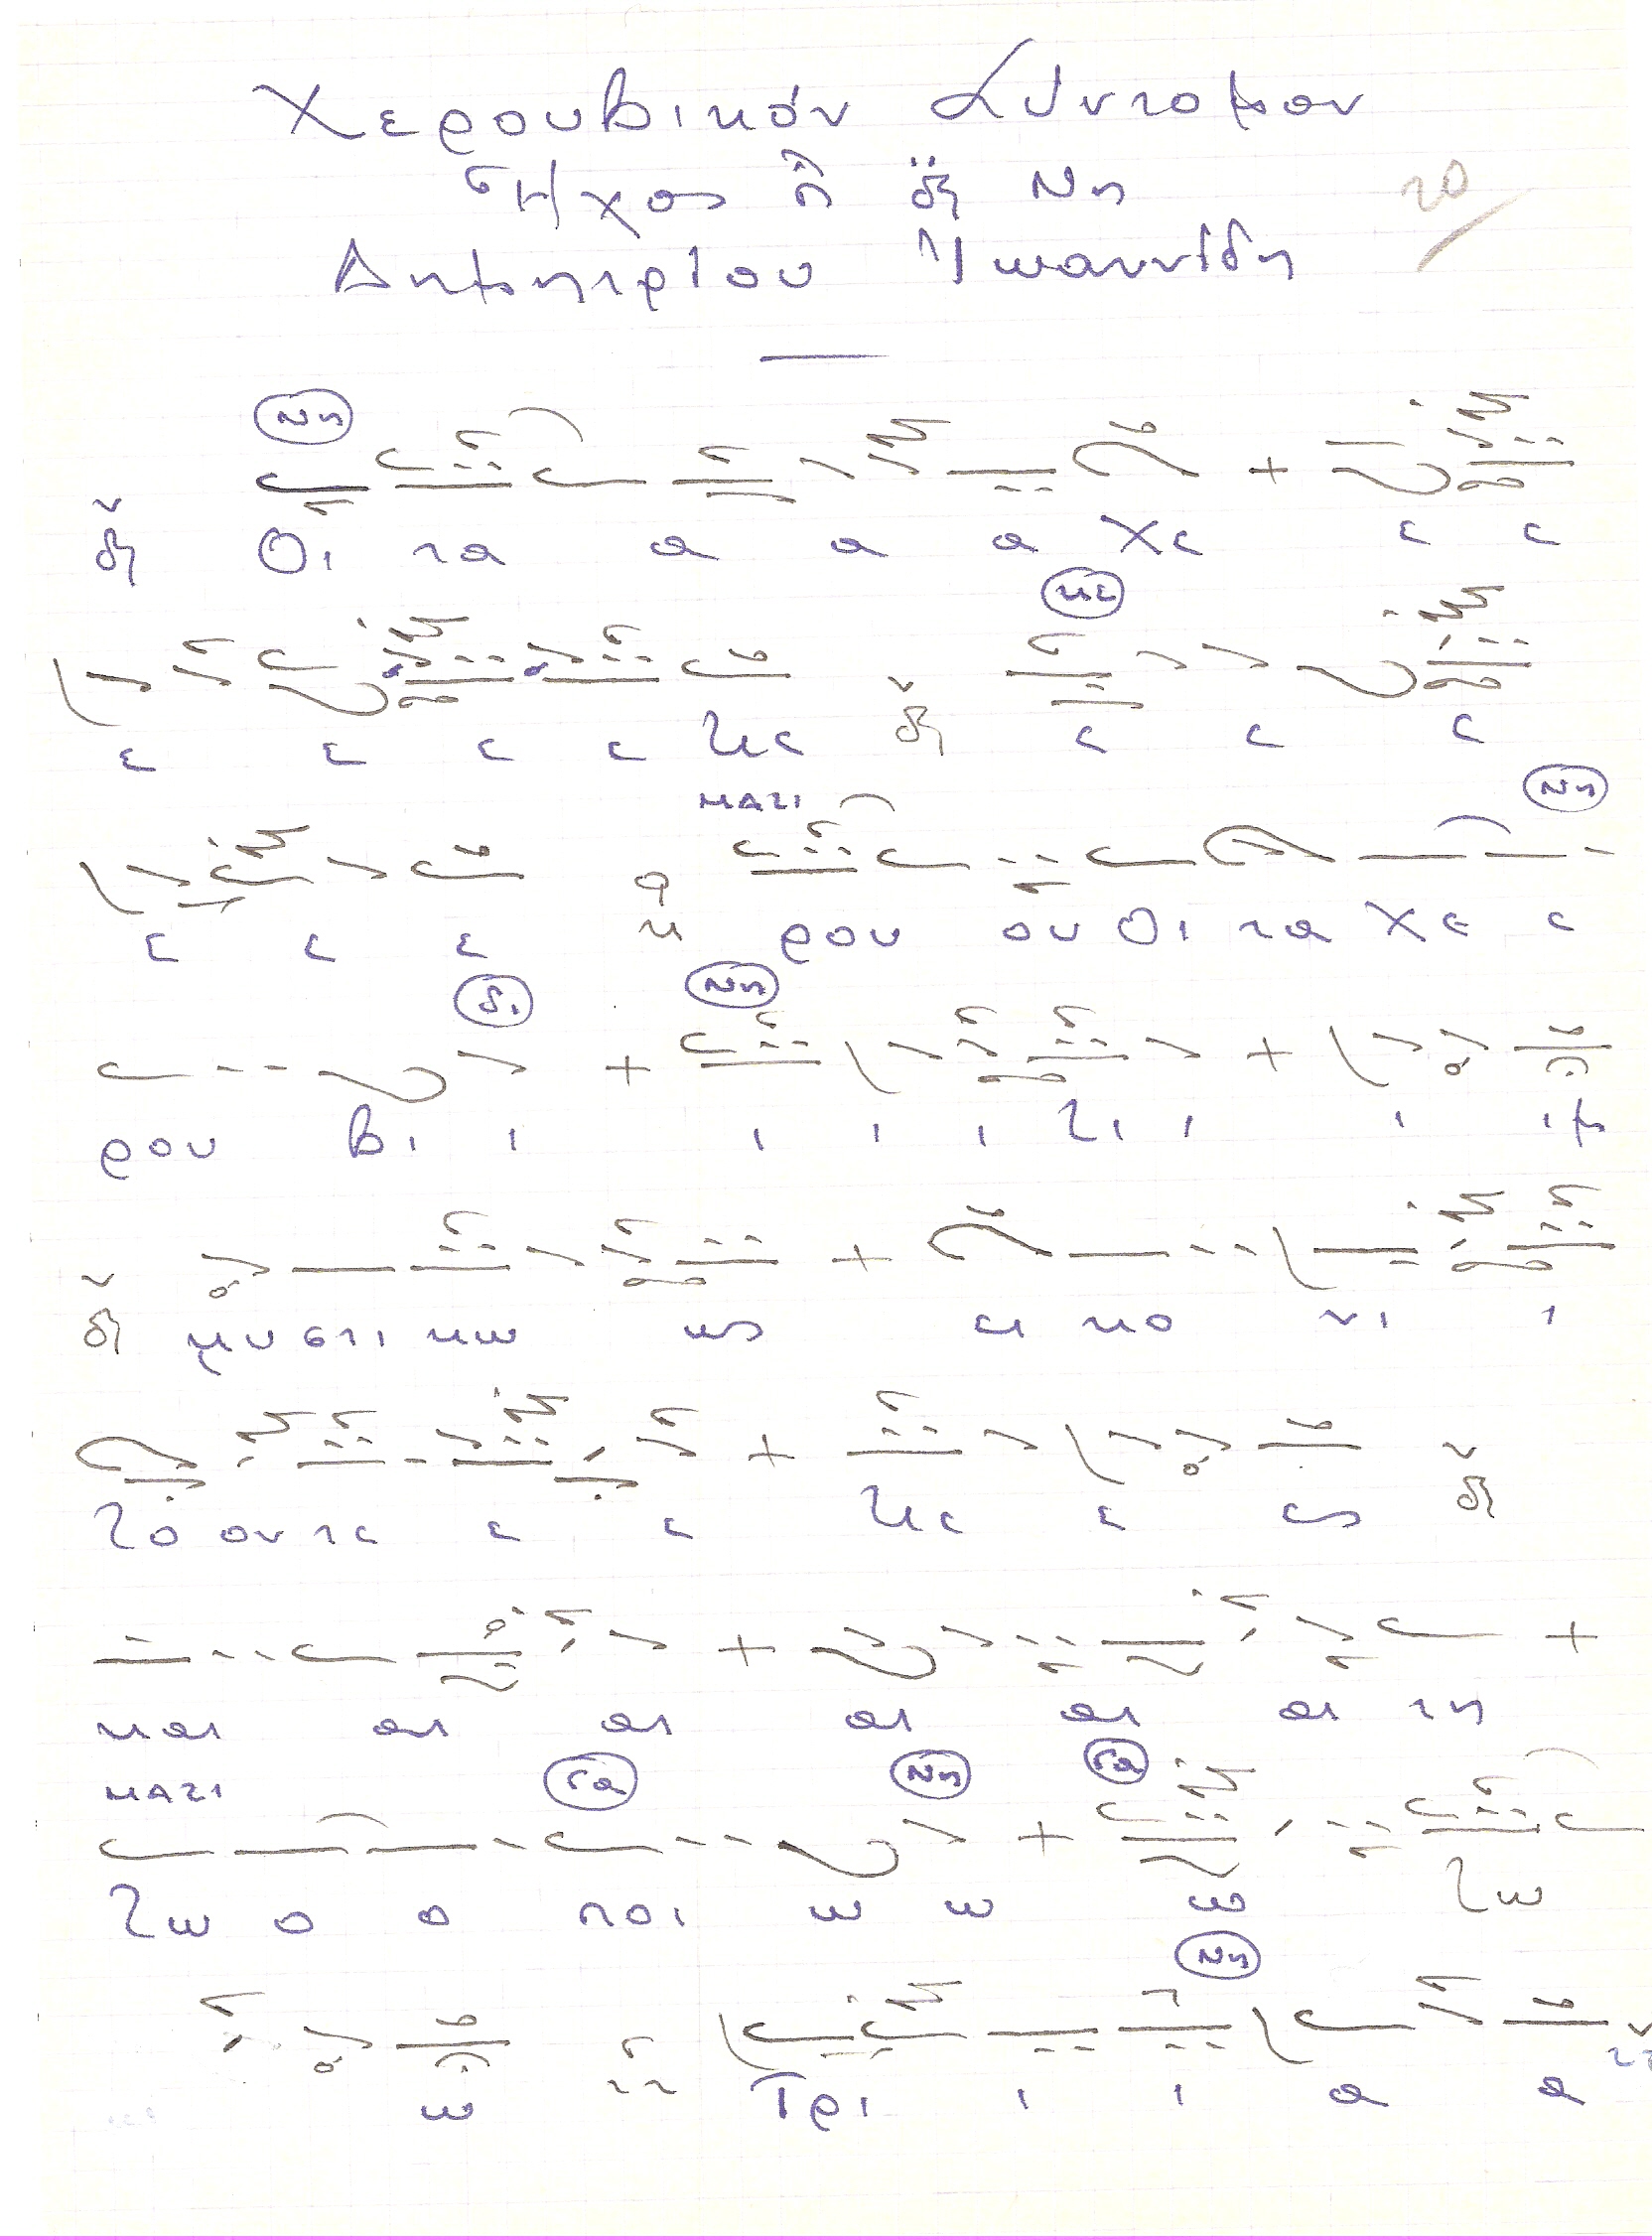 Χερουβικόν Σύντομον
Ἦχος π δ Νη
20
Δημητρίου Ἰωαννίδη
Νη
δ Οἱ τα α α α Χε ε ε
κε
ε ε ε ε χε δ ε ε ε
ΜΑΖΙ Νη
ε ε ε κ ρου ου Οἱ τα Χε ε
δι Νη
ρου βι ι ι ι ι χι ι ι ιμ
δ μυστι κω ως ει κο νι ι
ζο οντε ε ε χε ε ες δ
και αι αι αι αι αι τη
ΜΑΖΙ Γα Νη Γα
ζω ο ο ποι ω ω ω χω
Νη
ω Τρι ι ι α α